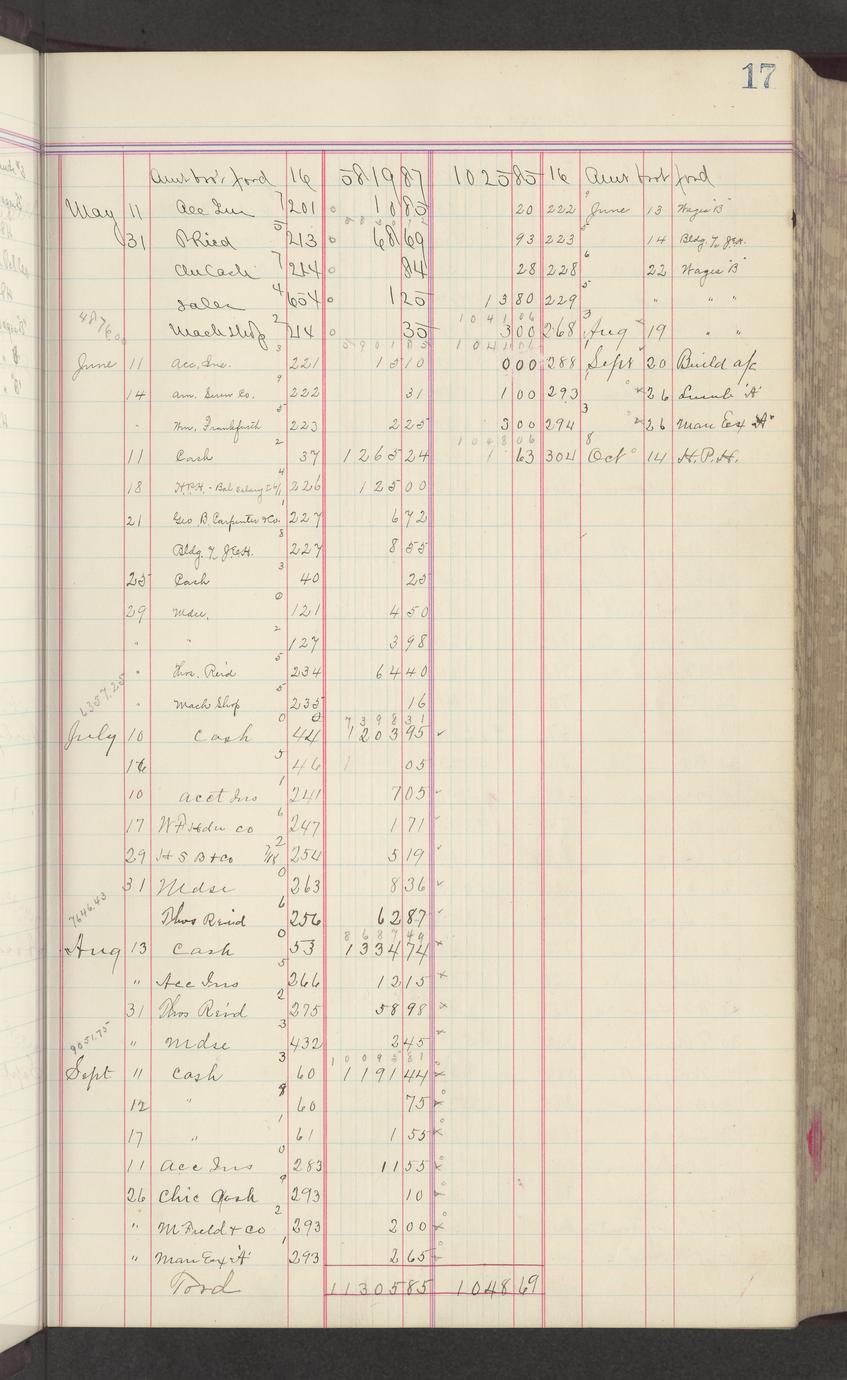 17
Amt bro't ford 16 5819 87 1025 85 16 Amt brot ford
May 11 Acc Ins 7 201 10 85 20 222 June 13 Wages "B"
31 T Ried 5 213 68 69 93 223 14 Bldg. 7, J.E.H.
Au Cash 7 214 84 28 228 6 22 Wages "B"
Sales 4 654 1 25 13 80 229 5 " " "
4876 60 Mach Shop 2 214 35 10 41 06 3 00 268 3 Aug 19 " "
June 11 Acc. Ins. 3 221 5901 85 15 10 1041 06 0 00 288 Sept 20 Build a/c
14 Am. Screw Co. 9 222 31 1 00 293 26 Lumb "A"
" Wm. Frankfurth 5 223 2 25 3 00 294 3 26 Man Ex "A"
11 Cash 2 37 1265 24 1048 06 63 304 8 Oct 14 H.P.H.
18 H.P.H. - Bal Salary 4 226 125 00
21 Geo. B. Carpenter & Co. 1 227 6 72
Bldg. 7, J.E.H. 8 227 8 55
25 Cash 3 40 25
29 Mdse. 0 121 4 50
" " 2 127 3 98
" Thos. Reid 5 234 64 40
6357.25 " Mach Shop 5 235 16
7398 31
July 10 Cash 0 44 1203 95
16 5 46 05
10 Acct Ins 1 241 7 05
17 W F Hdw Co 6 247 1 71
29 H S B & Co 7/8 2 254 5 19
31 Mdse 0 263 8 36
7646.43 Thos Reind 6 256 62 87
8687 49
Aug 13 Cash 0 53 1334 74
" Acc Ins 5 266 12 15
31 Thos Reind 2 275 58 98
9051.75 " Mdse 3 432 2 45
10095 81
Sept 11 Cash 3 60 1191 44
12 " 8 60 75
17 " 1 61 1 55
11 Acc Ins 0 283 11 55
26 Chic Cash 9 293 10
" M Field & Co 2 293 2 00
" Man Ex "A" 1 293 2 65
Ford 11305 85 1048 69